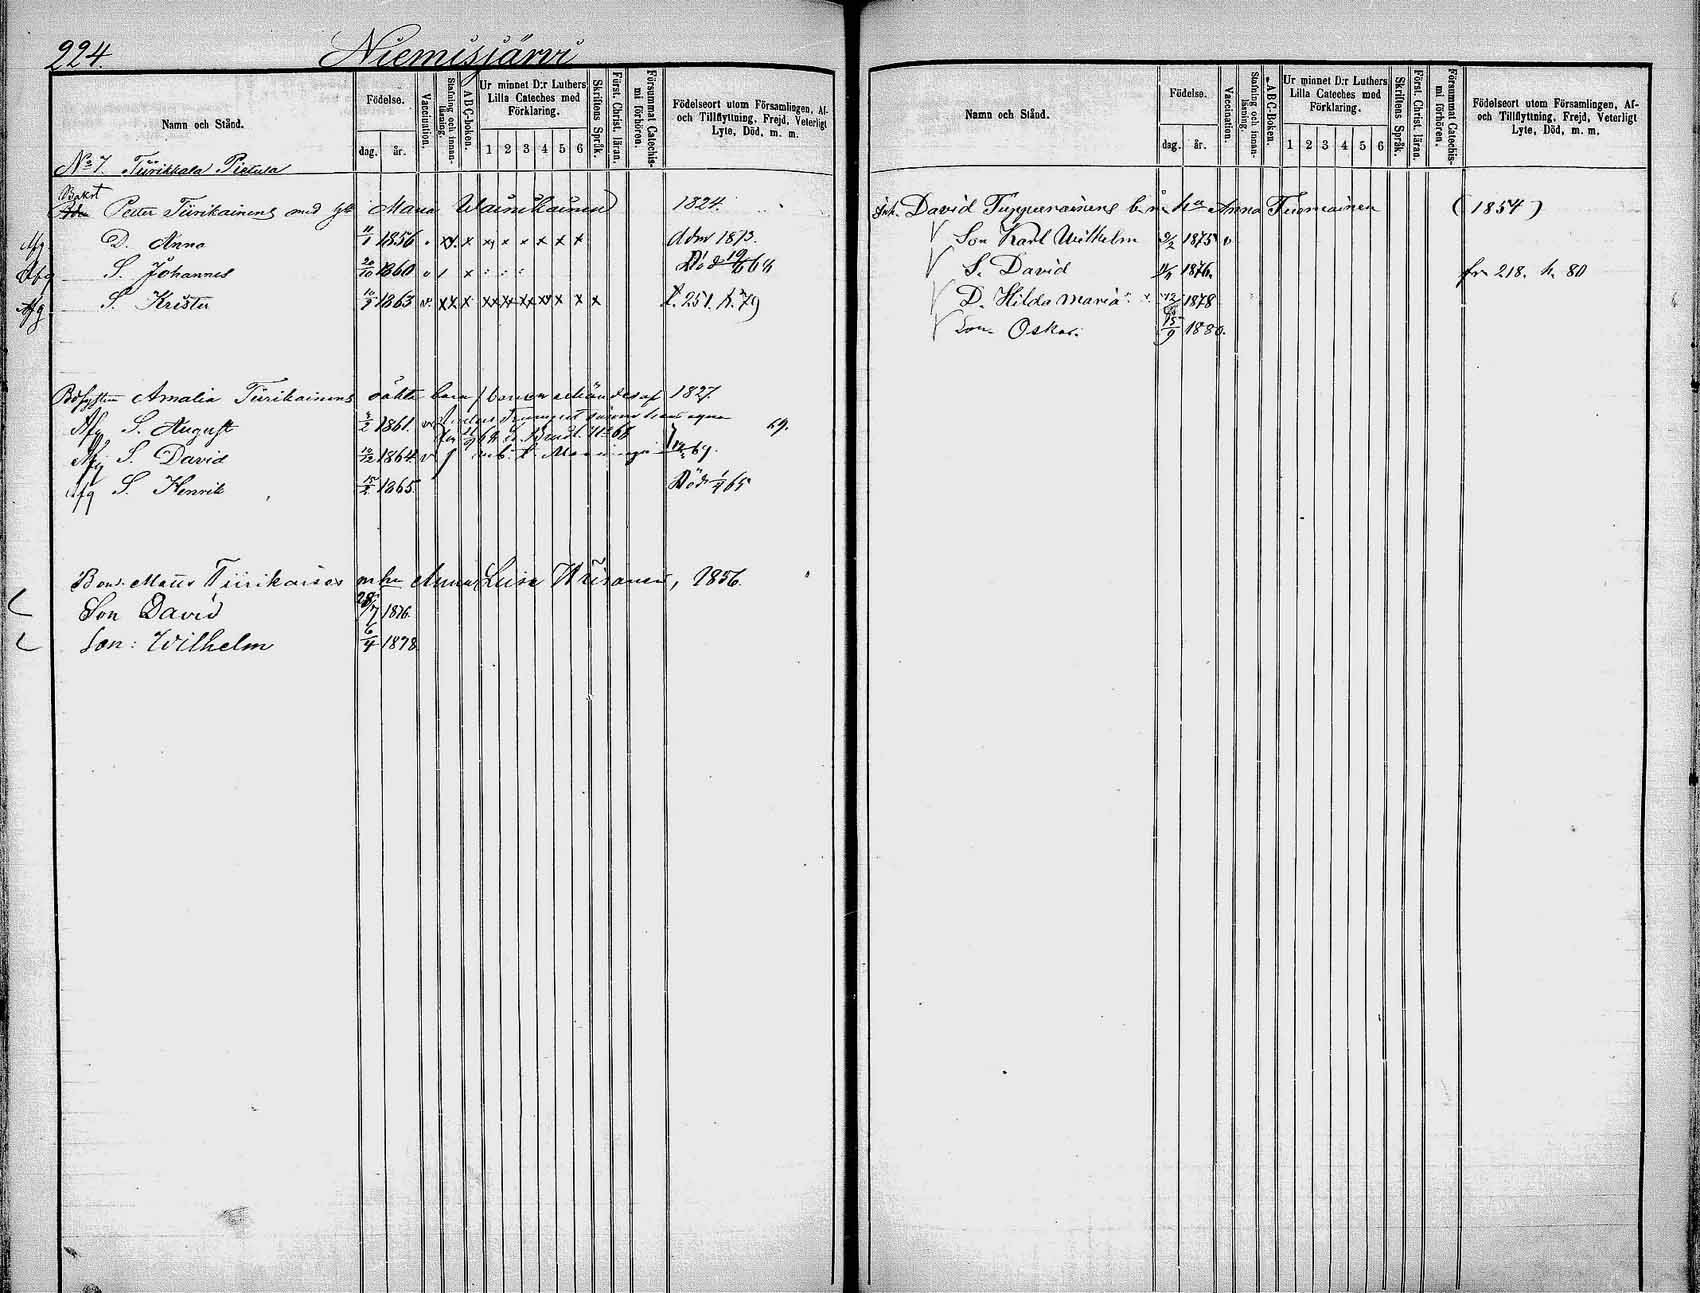 224.
Niemisjärvi
Namn och Stånd.
Födelse.
dag. år.
Vaccination.
Stafning och innanläsning.
ABC-boken.
Ur minnet D:r Luthers Lilla Cateches med Förklaring.
1 2 3 4 5 6
Skriftens Språk.
Först. Christ. läran.
Försummat Catechismi förhören.
Födelseort utom Församlingen, Af- och Tillflyttning, Frejd, Veterligt Lyte, Död, m. m.
No 7. Tiirikkala Pietula
Peter Tiirikainens med Maria Wainikainen 1824.
Afg D. Anna 11/1 1856 Adm 1873.
Afg S. Johannes 20/10 1860 Död 19/6 64
Afg S. Krister 10/3 1863 f. 251. h. 79
Amalia Tiirikainens oäkta barn 1827
Afg S. August 1861. 69.
Afg S. David 1864
Afg S. Henrik 15/2 1865. Död 65
Bond. Matts Tiirikaises m hu Anna Luisa 1856.
Son David 28/7 1876.
Son: Wilhelm 6/4 1878
Namn och Stånd.
Födelse.
dag. år.
Vaccination.
Stafning och innanläsning.
ABC-Boken.
Ur minnet D:r Luthers Lilla Cateches med Förklaring.
1 2 3 4 5 6
Skriftens Språk.
Först. Christ. läran.
Försummat Catechismi förhören.
Födelseort utom Församlingen, Af- och Tillflyttning, Frejd, Veterligt Lyte, Död, m. m.
Inh. David Tuppurainens b. m. hu Anna Tuomainen (1854)
Son Karl Wilhelm 9/2 1875 v
S. David 1876. fr 218. h. 80
D. Hilda Maria 1878
Son Oskar. 15/9 1880.